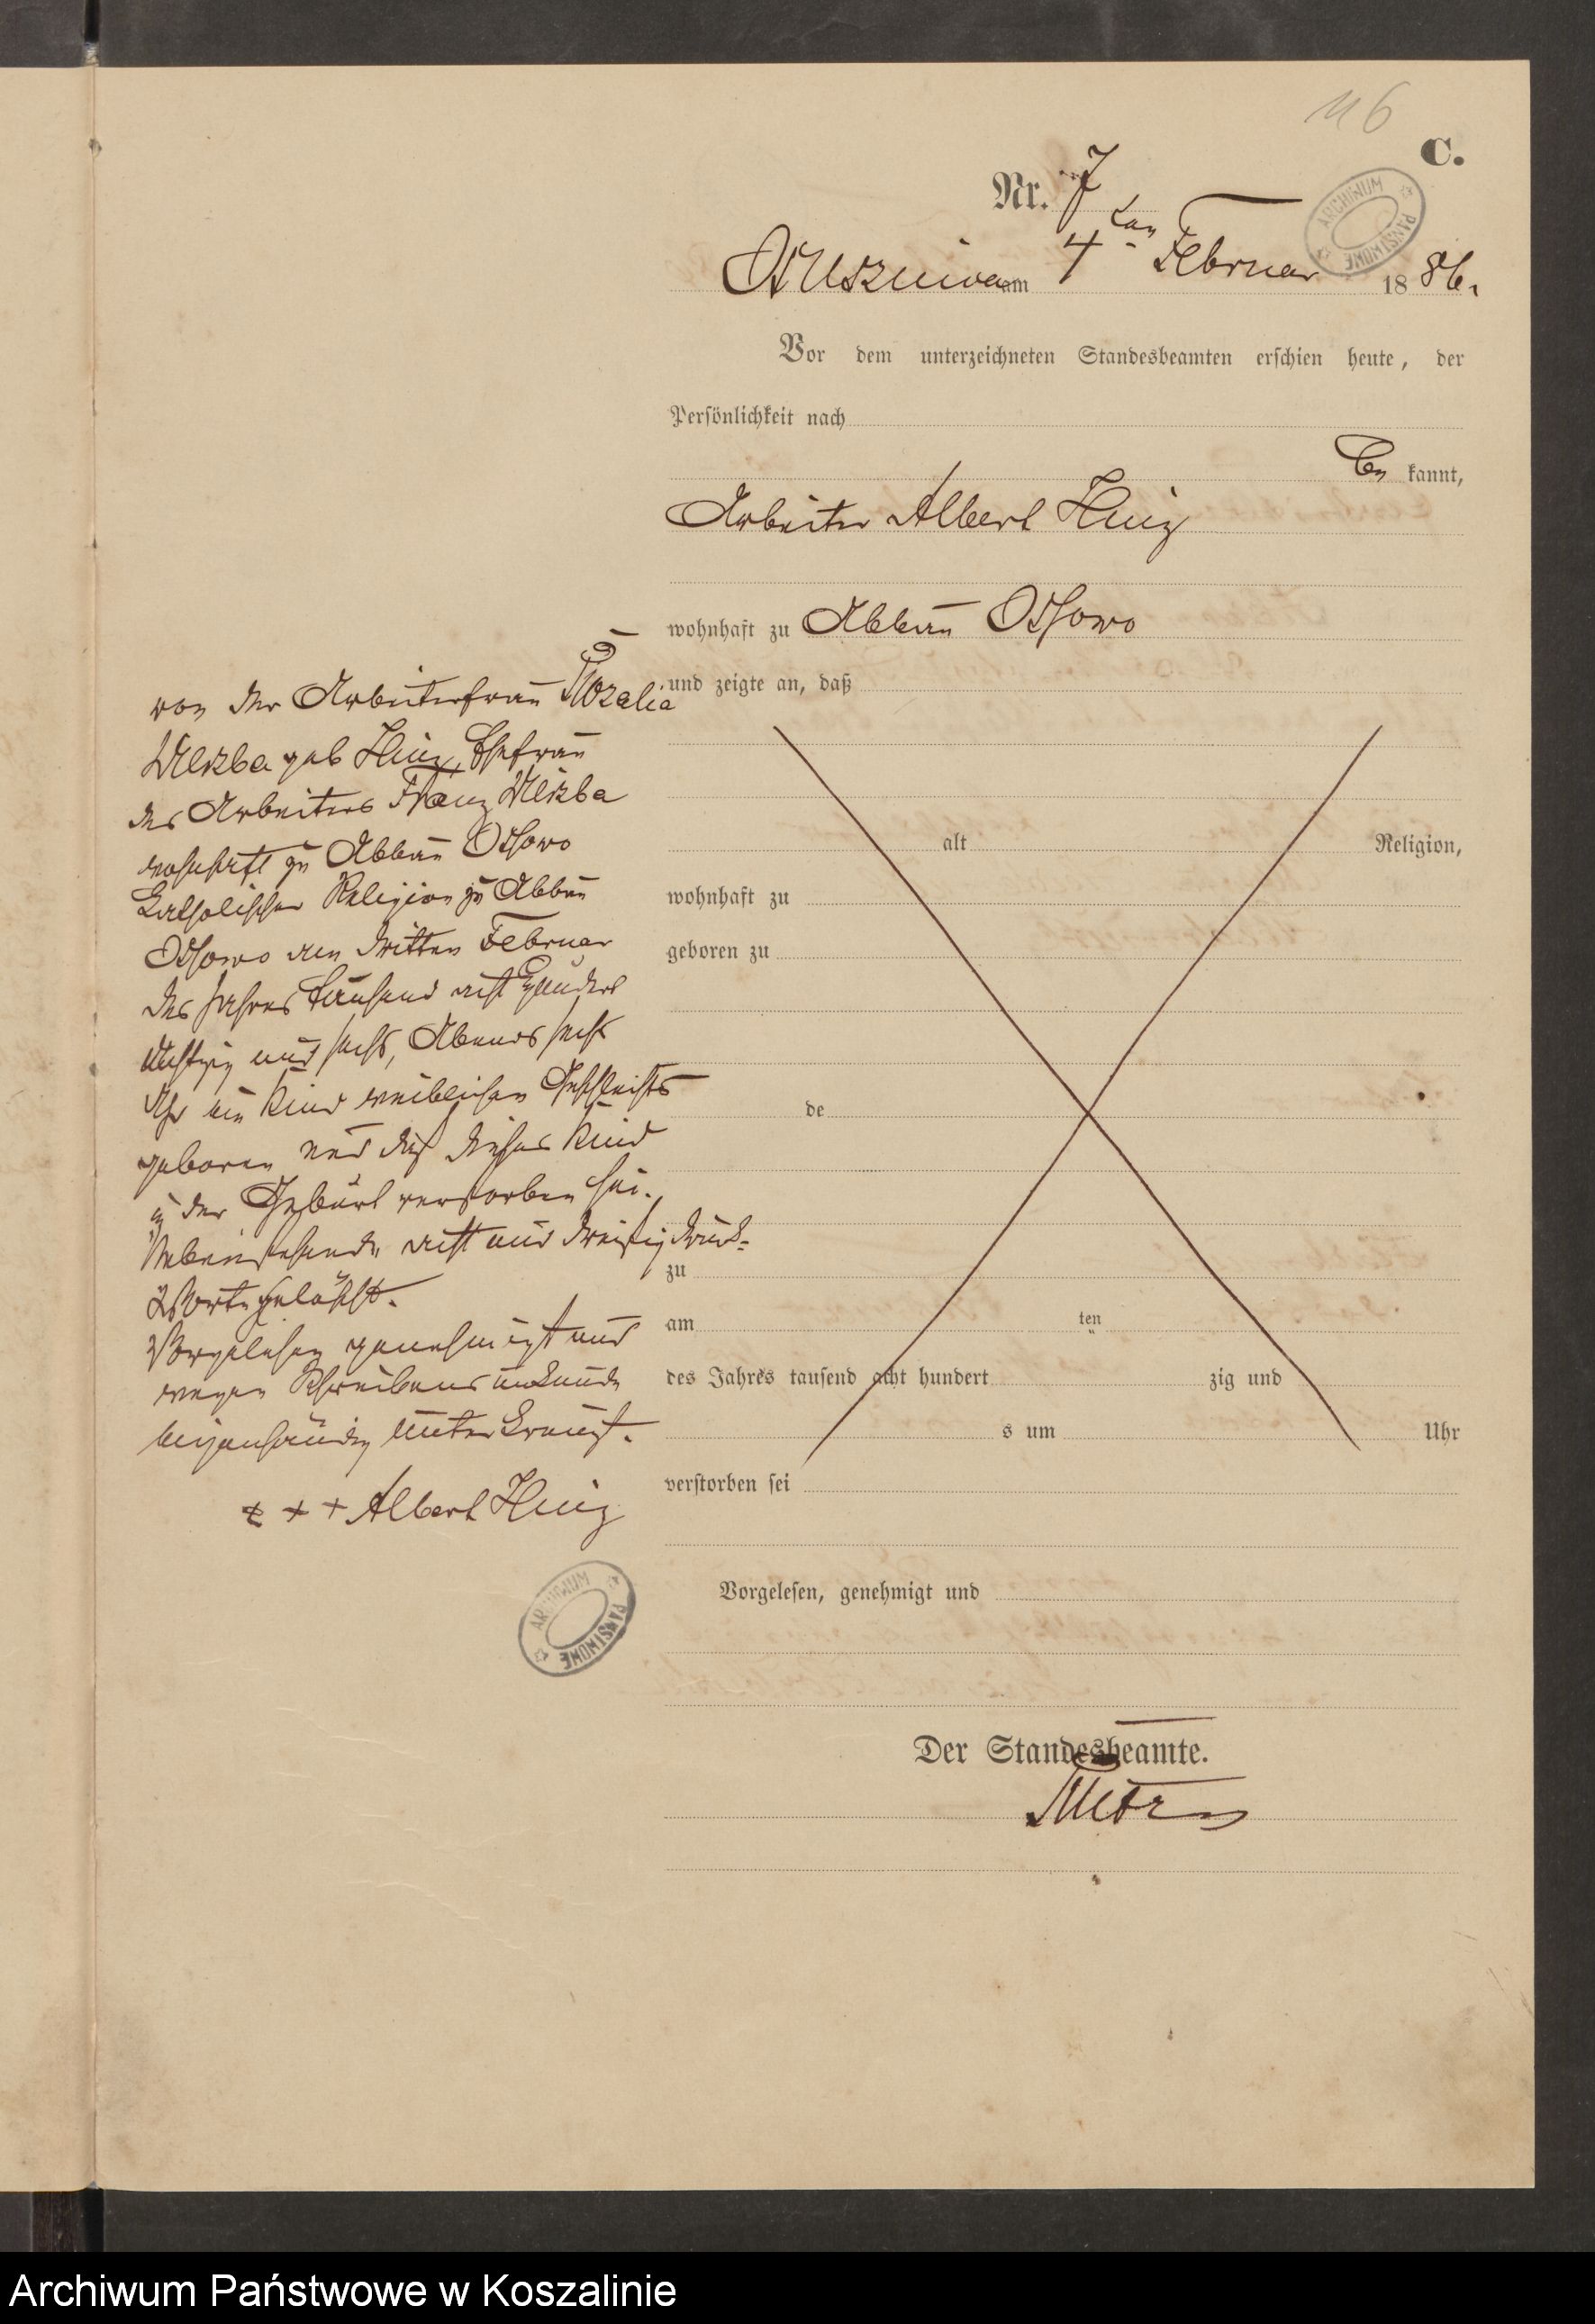 116
C.
Nr. 7
am 4ten Februar 1886.
Vor dem unterzeichneten Standesbeamten erschien heute, der
Persönlichkeit nach
be kannt,
Arbeiter Albert Hinz
wohnhaft zu Abbau Ossowo
und zeigte an, daß
von der Arbeiterfrau Rozalia
geb Hinz, Ehefrau
des Arbeiters Franz
wohnhaft zu Abbau Ossowo
katholischer Religion zu Abbau
Ossowo den dritten Februar
des Jahres tausend acht hundert
achtzig und sechs, Abends sechs
Uhr ein Kind weiblichen Geschlechts
geboren und daß dieses Kind
in der Geburt verstorben sei.
Nebenstehende acht und dreißig Druck-
Worte gelöscht.
Vorgelesen genehmigt und
wegen Schreibens unkunde
unterkreuzt.
+ + + Albert Hinz
alt Religion,
wohnhaft zu
geboren zu
de
zu
am ten
des Jahres tausend acht hundert zig und
s um Uhr
verstorben sei
Vorgelesen, genehmigt und
Der Standesbeamte.
ARCHIWUM PAŃSTWOWE
ARCHIWUM PAŃSTWOWE
Archiwum Państwowe w Koszalinie